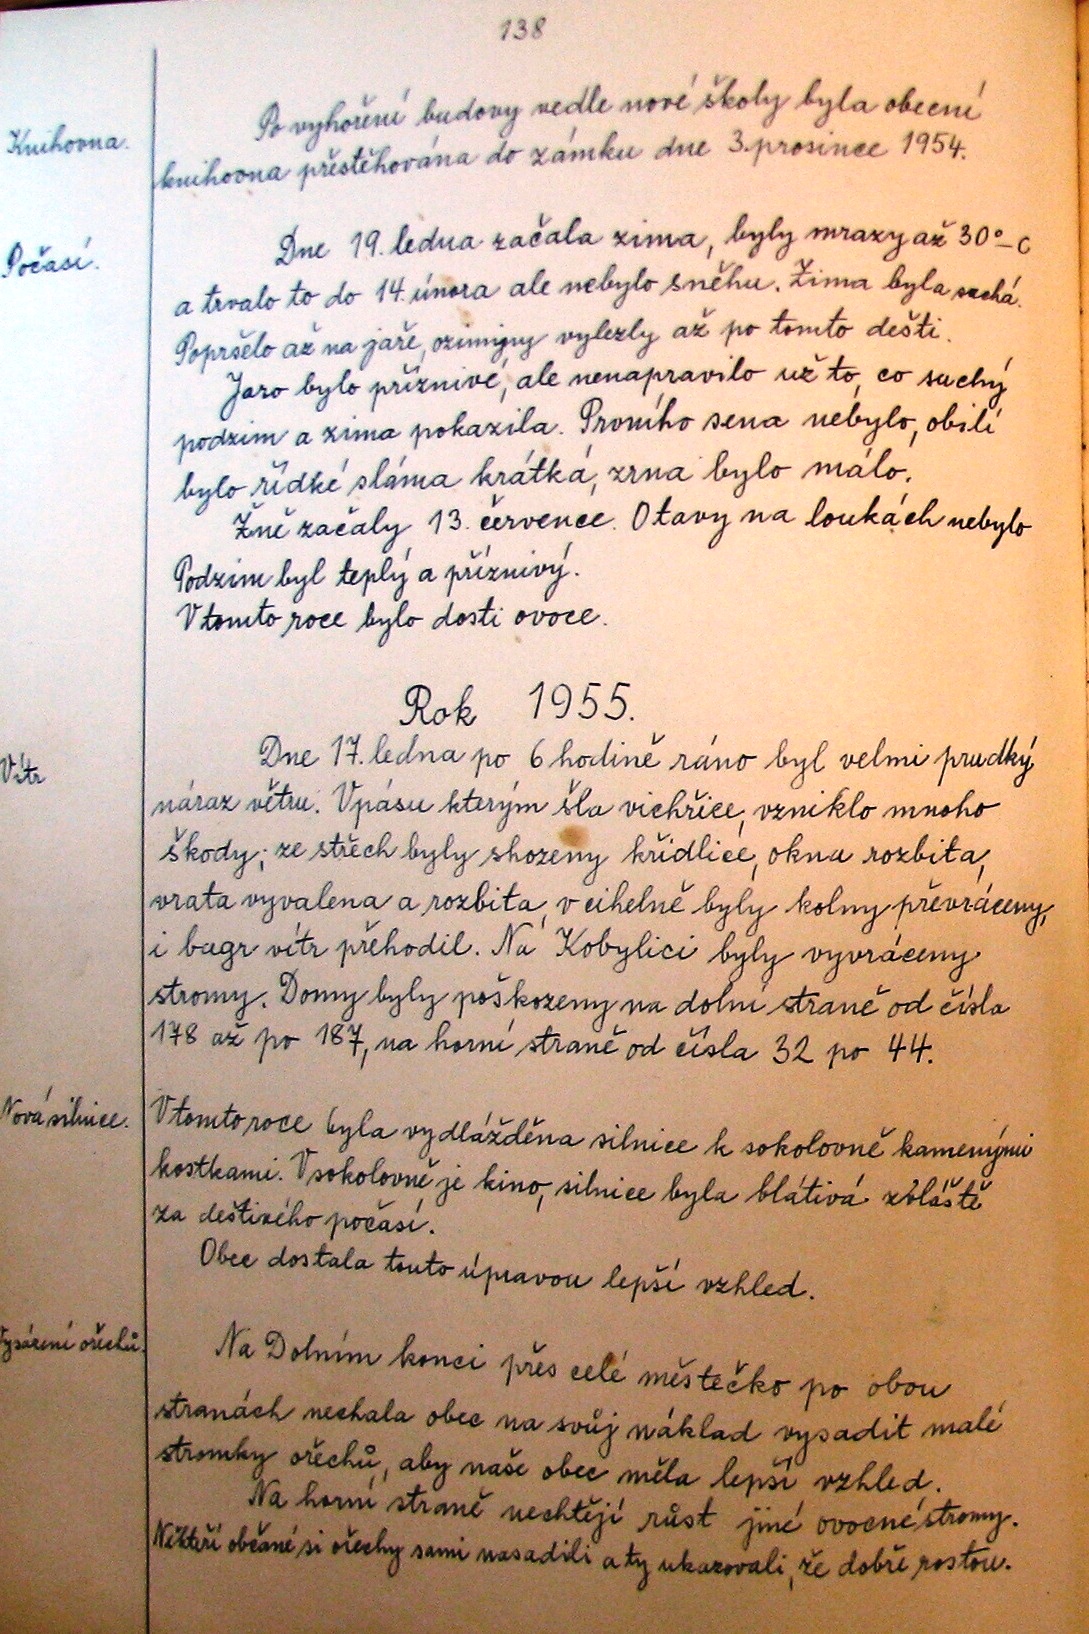 138
Knihovna.
Po vyhoření budovy vedle nové školy byla obecní
knihovna přestěhována do zámku dne 3. prosince 1954.
Počasí.
Dne 19. ledna začala zima, byly mrazy až 30° - C
a trvalo to do 14. února ale nebylo sněhu. Zima byla suchá.
Popršelo až na jaře, ozimyny vylezly až po tomto dešti.
Jaro bylo příznivé, ale nenapravilo už to, co suchý
podzim a zima pokazila. Prvního sena nebylo, obilí
bylo řídké sláma krátká, zrna bylo málo.
Žně začaly 13. července. Otavy na loukách nebylo
Podzim byl teplý a příznivý.
V tomto roce bylo dosti ovoce.
Rok 1955.
Vítr
Dne 17. ledna po 6 hodině ráno byl velmi prudký
náraz větru. V pásu kterým šla vichřice, vzniklo mnoho
škody; ze střech byly shozeny křidlice, okna rozbita,
vrata vyvalena a rozbita, v cihelně byly kolny převráceny,
i bagr vítr přehodil. Na Kobylici byly vyvráceny
stromy. Domy byly poškozeny na dolní straně od čísla
178 až po 187, na horní straně od čísla 32 po 44.
Nová silnice.
V tomto roce byla vydlážděna silnice k sokolovně kamenými
kostkami. V sokolovně je kino, silnice byla blátivá zvláště
za deštivého počasí.
Obec dostala touto úpravou lepší vzhled.
Vysázení ořechů.
Na Dolním konci přes celé městečko po obou
stranách nechala obec na svůj náklad vysadit malé
stromky ořechů, aby naše obec měla lepší vzhled.
Na horní straně nechtějí růst jiné ovocné stromy.
Někteří občané si ořechy sami nasadili a ty ukazovali, že dobře rostou.